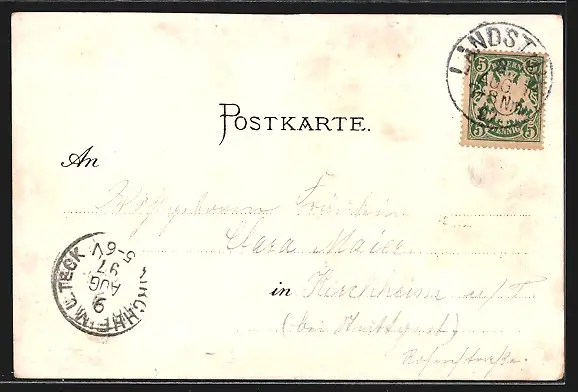 LANDST
AUG
8 N
BAYERN
5 5
5 PFENNIG 5
POSTKARTE.
An
Wohlgeboren Fräulein
Clara Maier
in Kirchheim u/T.
(bei Stuttgart)
Rosenstraße.
KIRCHHEIM U. TECK
9
AUG
97
5-6 V